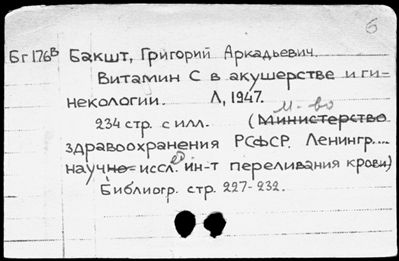 б
Бг 176В Бакшт, Григорий Аркадьевич.
Витамин С в акушерстве и ги-
некологии. Л, 1947.
м-во
234 стр. с илл. (Министерство
здравоохранения РСФСР. Ленингр....
научно-иссл. ин-т переливания крови)
Библиогр. стр. 227-232.